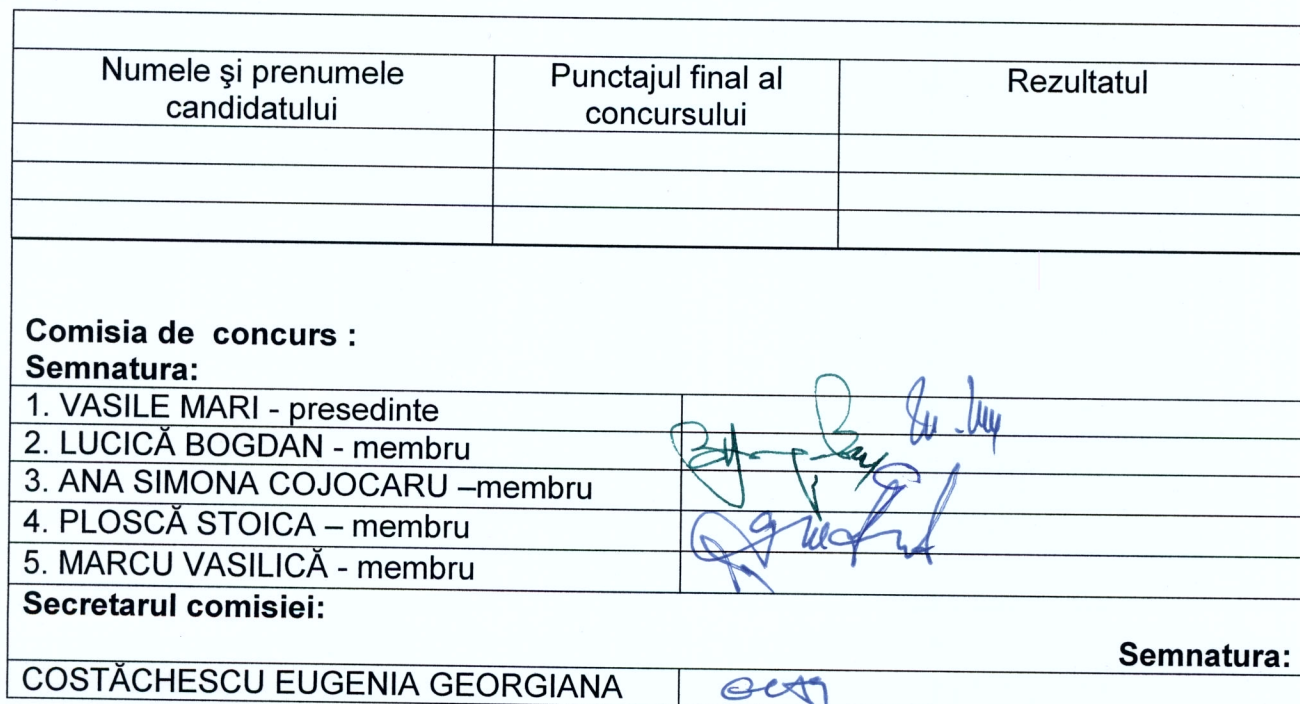 Numele şi prenumele candidatului
Punctajul final al concursului
Rezultatul
Comisia de concurs :
Semnatura:
1. VASILE MARI - presedinte
2. LUCICĂ BOGDAN - membru
3. ANA SIMONA COJOCARU –membru
4. PLOSCĂ STOICA – membru
5. MARCU VASILICĂ - membru
Secretarul comisiei:
Semnatura:
COSTĂCHESCU EUGENIA GEORGIANA